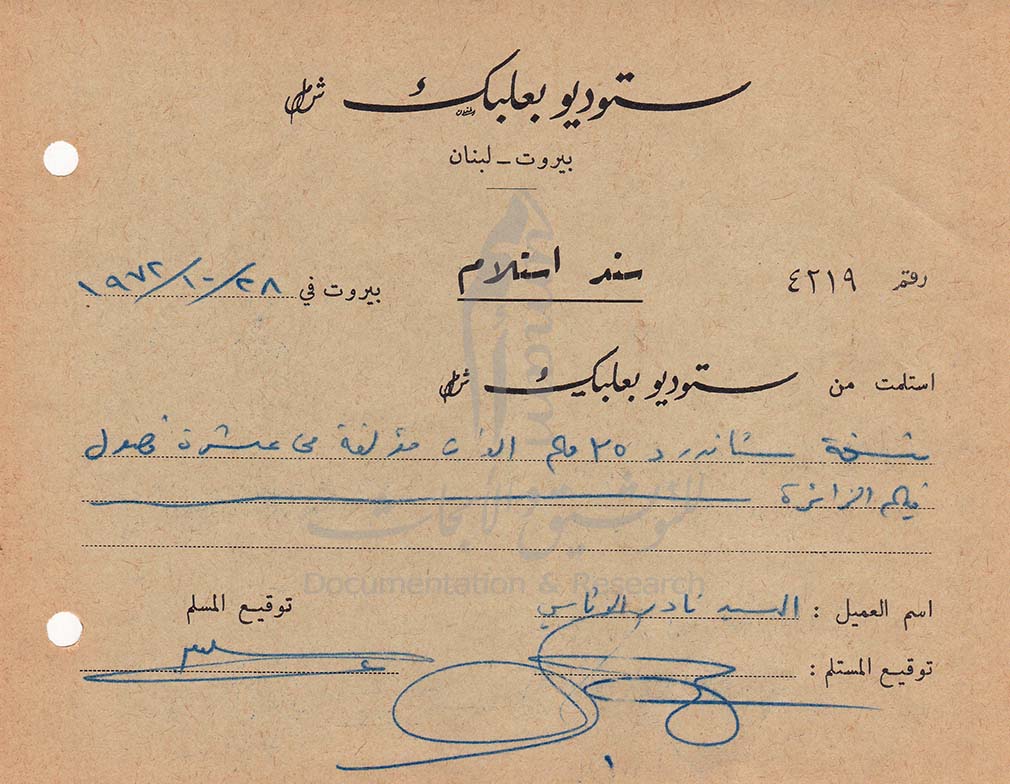 ستوديو بعلبك ش.م.ل
بيروت - لبنان
رقم ٤٢١٩
سند استلام
بيروت في ٢٨/١٠/١٩٧٢
استلمت من ستوديو بعلبك ش.م.ل
نسخة ستاندرد ٣٥ ملم الوان مؤلفة من عشرة فصول
فيلم الزائرة
اسم العميل : السيد نادر الاتاسي
توقيع المسلم
توقيع المستلم :
للتوثيق والأبحاث
Documentation & Research